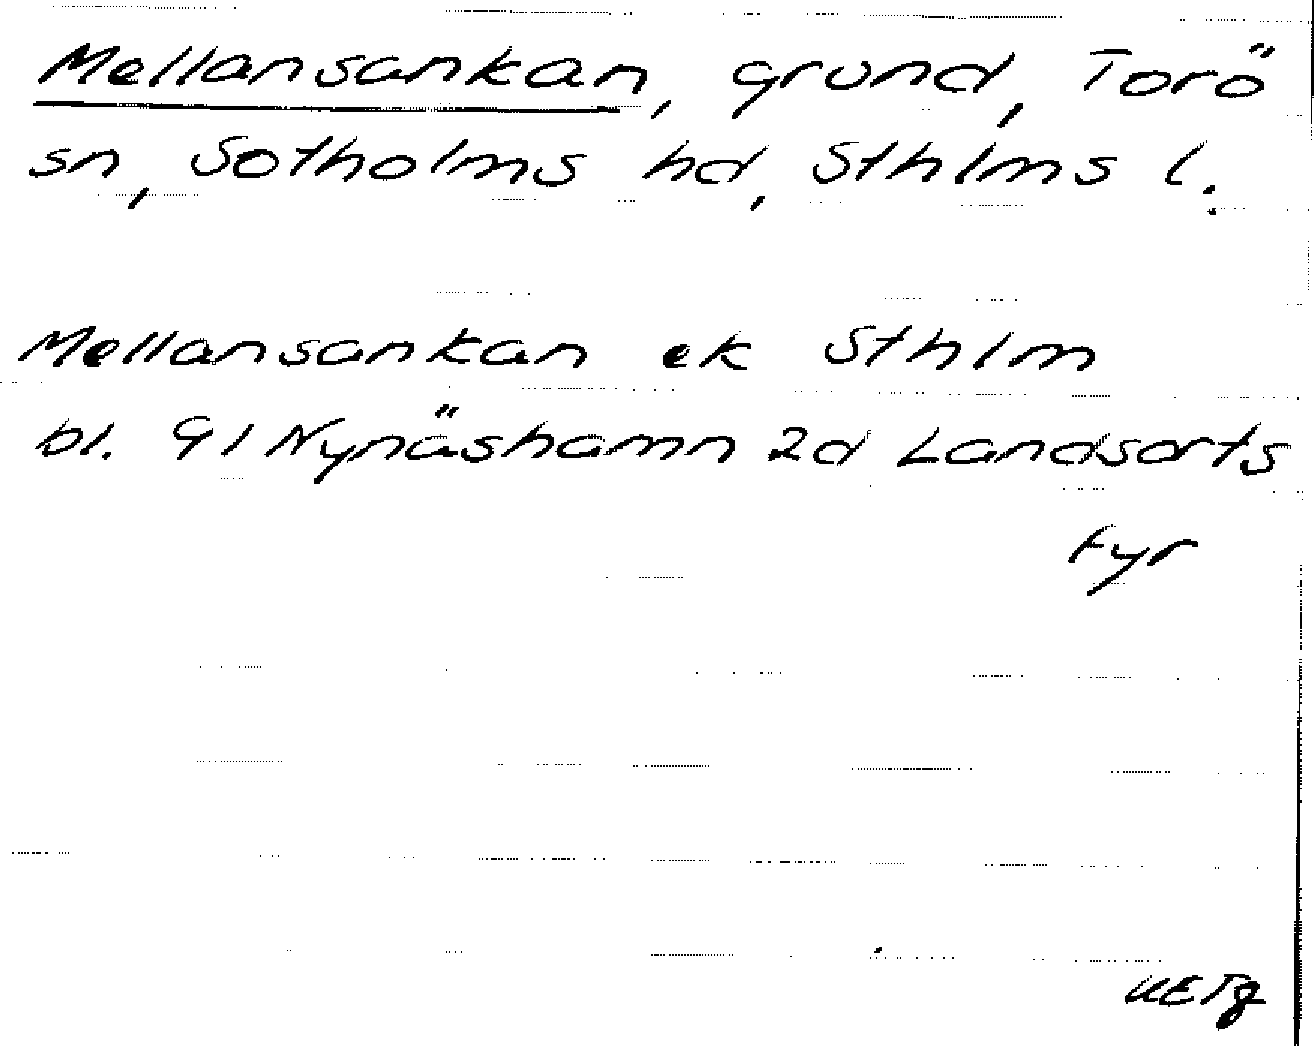 Mellansankan, grund, Torö
sn, Sotholms hd, Sthlms l.
Mellansankan ek Sthlm
bl. 91 Nynäshamn 2d Landsorts
fyr